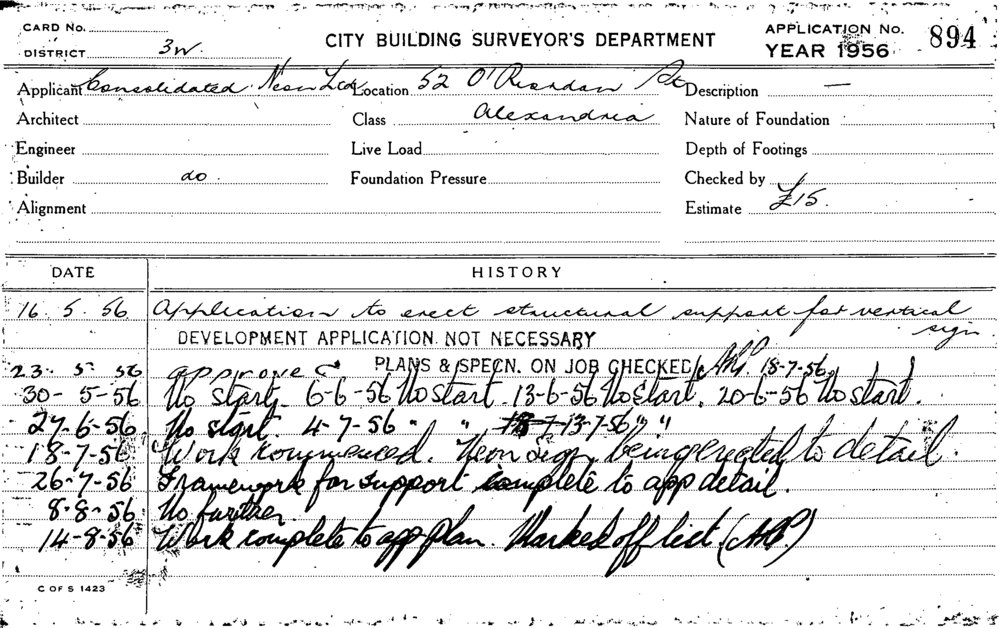 CARD No.
DISTRICT 3W.
CITY BUILDING SURVEYOR'S DEPARTMENT
APPLICATION No. 894
YEAR 1956
Applicant Consolidated Neon Ltd Location 52 O'Riordan St Description —
Architect Class Alexandria Nature of Foundation
Engineer Live Load Depth of Footings
Builder do. Foundation Pressure Checked by
Alignment Estimate £15.
DATE HISTORY
16. 5. 56 Application to erect structural support for vertical
sign
DEVELOPMENT APPLICATION NOT NECESSARY
23. 5. 56 approved PLANS & SPECN. ON JOB CHECKED 18-7-56
30-5-56 No start. 6-6-56 No start. 13-6-56 No start. 20-6-56 No start.
27-6-56 No start 4-7-56 " " 13-7-56 " "
18-7-56 Work commenced. Neon sign being erected to detail.
26-7-56 Framework for support complete to app detail.
8-8-56 No further.
14-8-56 Work complete to app plan. Marked off list.
C OF S 1423